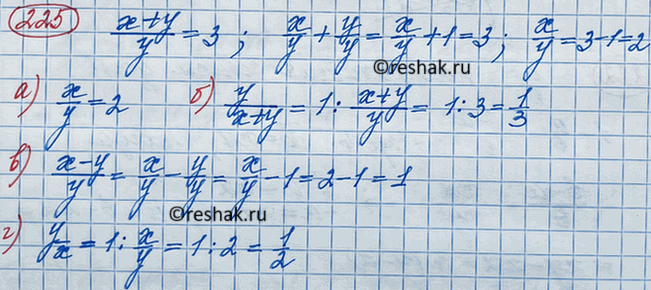 225 (x+y)/y = 3 ; x/y + y/y = x/y + 1 = 3 ; x/y = 3-1 = 2
©reshak.ru
а) x/y = 2 б) y/(x+y) = 1 : (x+y)/y = 1 : 3 = 1/3
в) (x-y)/y = x/y - y/y = x/y - 1 = 2-1 = 1
©reshak.ru
г) y/x = 1 : x/y = 1 : 2 = 1/2